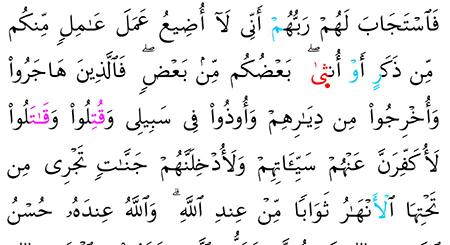 فَٱسْتَجَابَ لَهُمْ رَبُّهُمْ أَنِّى لَآ أُضِيعُ عَمَلَ عَـٰمِلٍ مِّنكُم
مِّن ذَكَرٍ أَوْ أُنثَىٰ ۖ بَعْضُكُم مِّنۢ بَعْضٍ ۖ فَٱلَّذِينَ هَاجَرُوا۟
وَأُخْرِجُوا۟ مِن دِيَـٰرِهِمْ وَأُوذُوا۟ فِى سَبِيلِى وَقُتِلُوا۟ وَقَـٰتَلُوا۟
لَأُكَفِّرَنَّ عَنْهُمْ سَيِّـَٔاتِهِمْ وَلَأُدْخِلَنَّهُمْ جَنَّـٰتٍ تَجْرِى مِن
تَحْتِهَا ٱلْأَنْهَـٰرُ ثَوَابًا مِّنْ عِندِ ٱللَّهِ ۗ وَٱللَّهُ عِندَهُۥ حُسْنُ